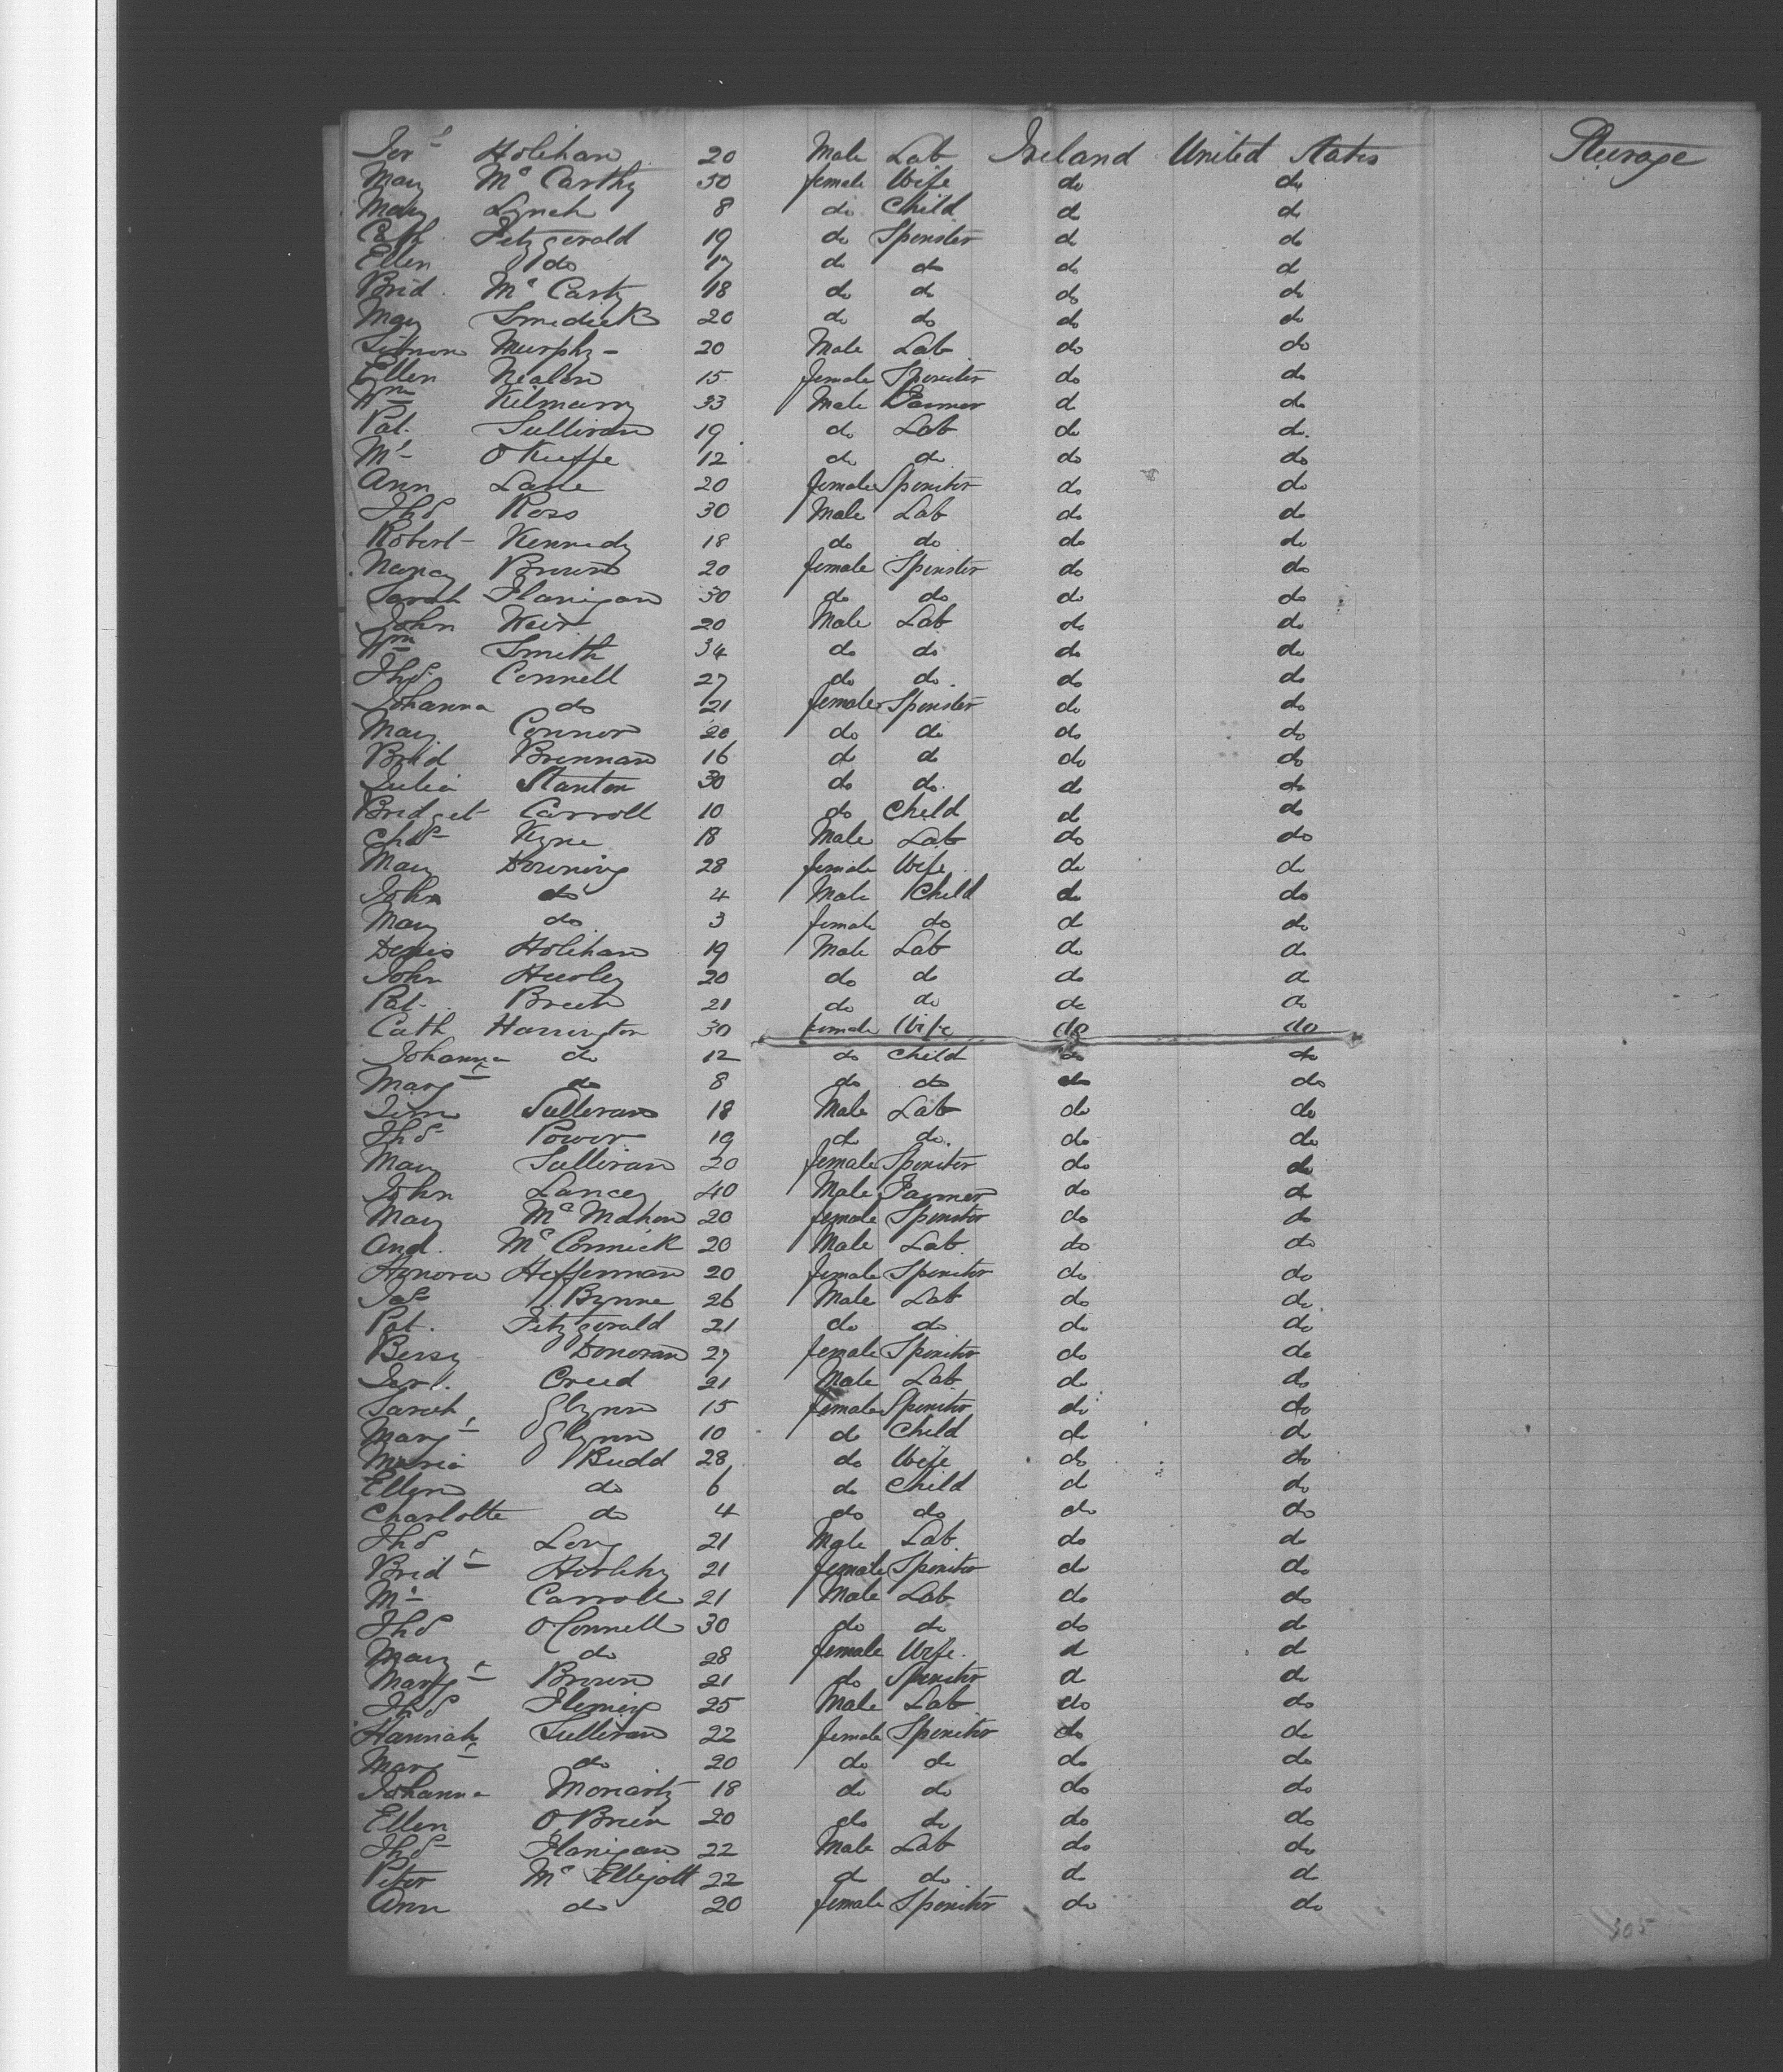 Jer^h Holihan 20 Male Lab Ireland United States Steerage
Mary M^c Carthy 50 female Wife do do
Mary Lynch 8 do Child do do
Cath Fitzgerald 19 do Spinster do do
Ellen do 17 do do do do
Brid. M^c Carty 18 do do do do
Mary Smedick 20 do do do do
Simon Murphy 20 Male Lab do do
Ellen Nealon 15 female Spinster do do
W^m Kilmarry 33 Male Farmer do do
Pat. Sullivan 19 do Lab do do
M^l O Keeffe 12 do do do do
Ann Lane 20 female Spinster do do
Tho^s Ross 30 Male Lab do do
Robert Kennedy 18 do do do do
Nancy Brown 20 female Spinster do do
Sarah Flanigan 30 do do do do
John Weir 20 Male Lab do do
W^m Smith 34 do do do do
Tho^s Connell 27 do do do do
Johanna do 21 female Spinster do do
Mary Connor 20 do do do do
Brid Brennan 16 do do do do
Julia Stanton 30 do do do do
Bridget Carroll 10 do Child do do
Cha^s Kyne 18 Male Lab do do
Mary Downing 28 female Wife do do
John do 4 Male Child do do
Mary do 3 female do do do
Denis Holihan 19 Male Lab do do
John Hurley 20 do do do do
Pat. Breen 21 do do do do
Cath Harrington 30 female Wife do do
Johanna do 12 do Child do do
Marg^t do 8 do do do do
Tim Sullivan 18 Male Lab do do
Tho^s Power 19 do do do do
Mary Sullivan 20 female Spinster do do
John Lancey 40 Male Farmer do do
Mary M^c Mahon 20 female Spinster do do
And. M^c Cormick 20 Male Lab do do
Honora Heffernan 20 female Spinster do do
Ja^s Byrne 26 Male Lab do do
Pat. Fitzgerald 21 do do do do
Bessy Donovan 27 female Spinster do do
Jer^h. Creed 21 Male Lab do do
Sarah Glynn 15 female Spinster do do
Marg^t Glynn 10 do Child do do
Maria Budd 28 do Wife do do
Ellen do 6 do Child do do
Charlotte do 4 do do do do
Tho^s Long 21 Male Lab do do
Brid^t Hurlihy 21 female Spinster do do
M^l Carroll 21 Male Lab do do
Tho^s O Connell 30 do do do do
Mary do 28 female Wife do do
Marg^t Brown 21 do Spinster do do
Tho^s Fleming 25 Male Lab do do
Hannah Sullivan 22 female Spinster do do
Marg^t do 20 do do do do
Johanna Moriarty 18 do do do do
Ellen O Brien 20 do do do do
Tho^s Flanigan 22 Male Lab do do
Peter M^c Elligott 22 do do do do
Ann do 20 female Spinster do do
305